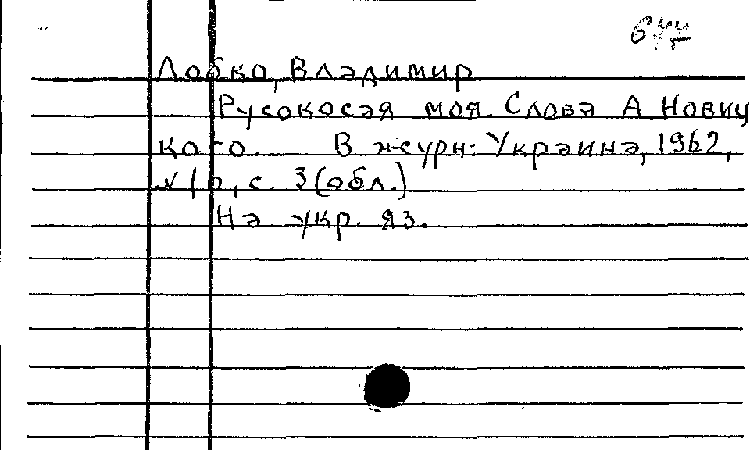 Лобко, Владимир
Русокосая моя. Слова А Новиц
кого. В журн: Украина, 1962,
с. 3 (обл.)
На укр. яз.